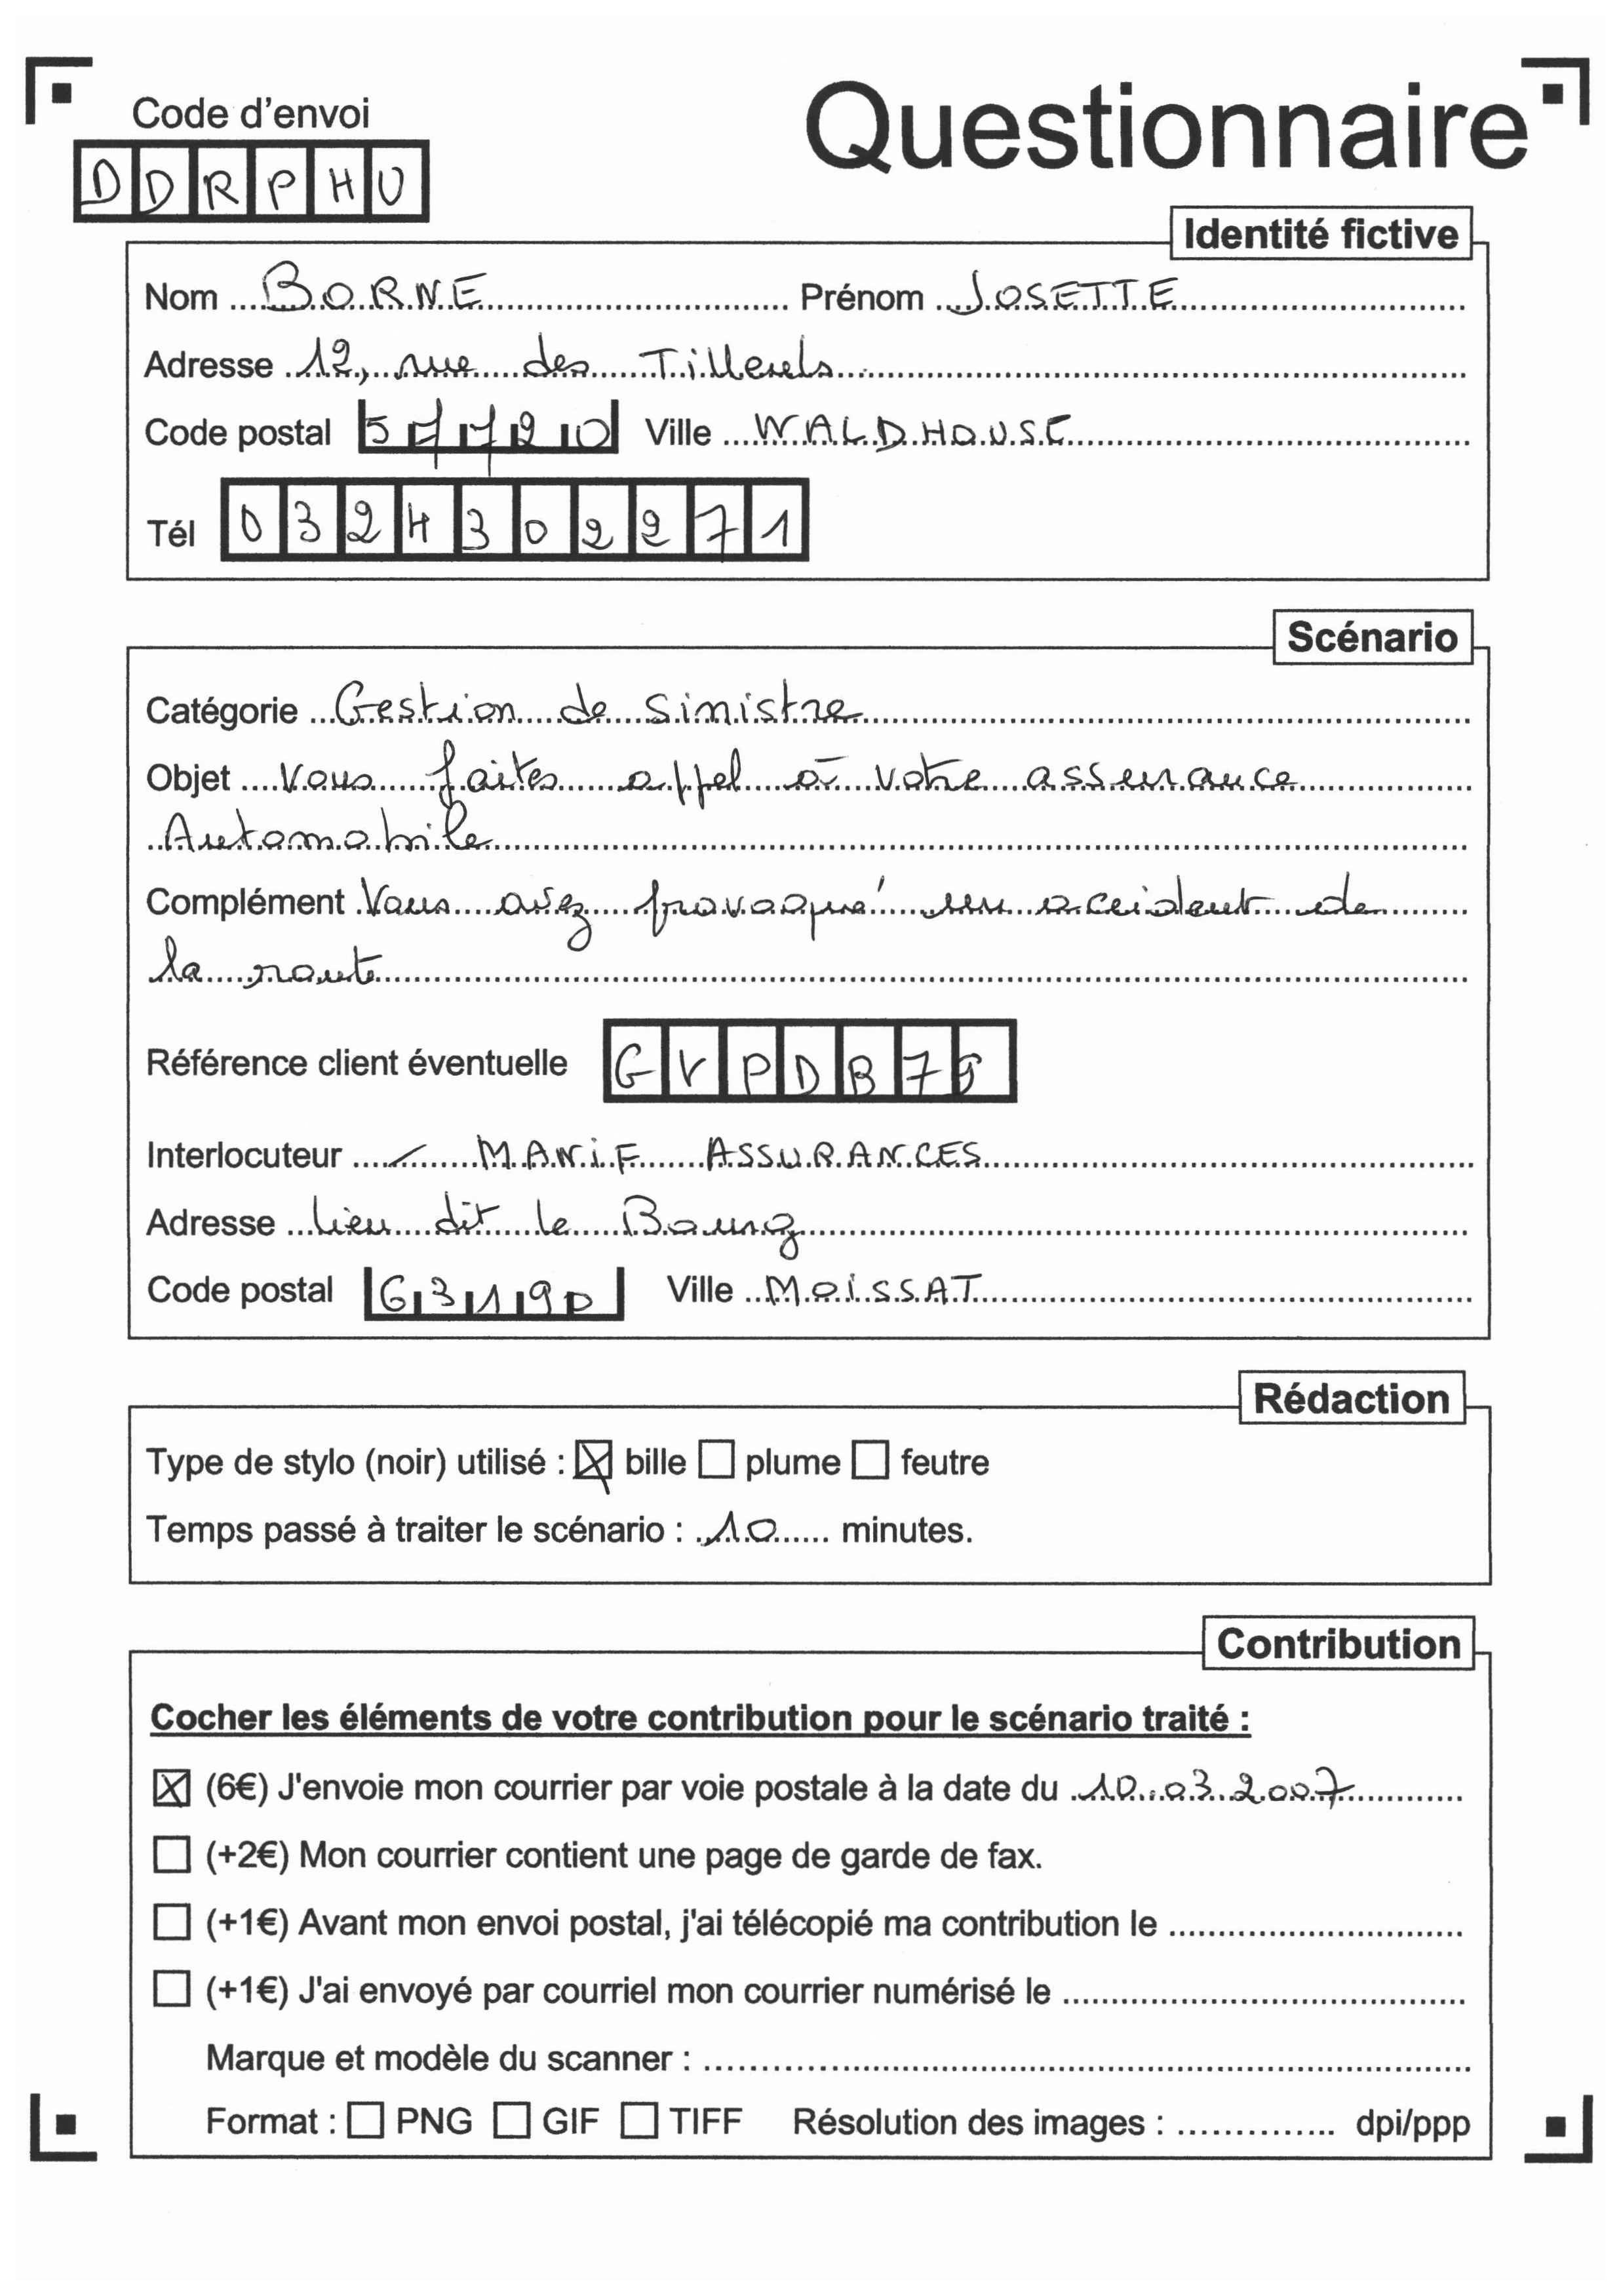 Code d'envoi
Questionnaire
DDRPHU
Identité fictive
Nom BORNE Prénom JOSETTE
Adresse 12, rue des Tilleuls
Code postal 57720 Ville WALDHOUSE
Tél 0324302271
Scénario
Catégorie Gestion de sinistre
Objet Vous faites appel à votre assurance
Automobile
Complément Vous avez provoqué un accident de
la route
Référence client éventuelle GVPDB79
Interlocuteur MANIF ASSURANCES
Adresse lieu dit le Bourg
Code postal 63190 Ville MOISSAT
Rédaction
Type de stylo (noir) utilisé : bille plume feutre
Temps passé à traiter le scénario : 10 minutes.
Contribution
Cocher les éléments de votre contribution pour le scénario traité :
(6€) J'envoie mon courrier par voie postale à la date du 10.03.2007
(+2€) Mon courrier contient une page de garde de fax.
(+1€) Avant mon envoi postal, j'ai télécopié ma contribution le
(+1€) J'ai envoyé par courriel mon courrier numérisé le
Marque et modèle du scanner :
Format : PNG GIF TIFF Résolution des images : dpi/ppp